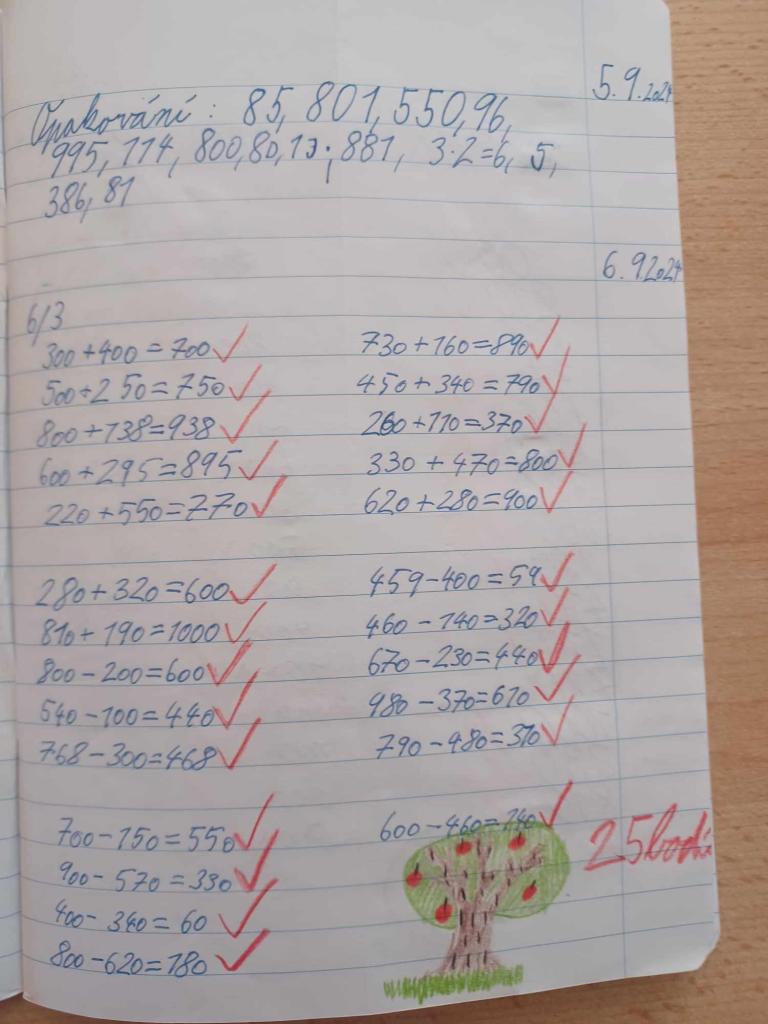 5.9.2024
Opakování: 85, 801, 550, 96,
995, 114, 800, 80, 13; 881, 3·2=6, 5,
386, 81
6.9.2024
6/3
300+400=700
500+250=750
800+138=938
600+295=895
220+550=770
730+160=890
450+340=790
260+110=370
330+470=800
620+280=900
280+320=600
810+190=1000
800-200=600
540-100=440
768-300=468
459-400=59
460-140=320
670-230=440
980-370=610
790-480=310
700-150=550
900-570=330
400-340=60
800-620=180
600-460=140
25 bodů